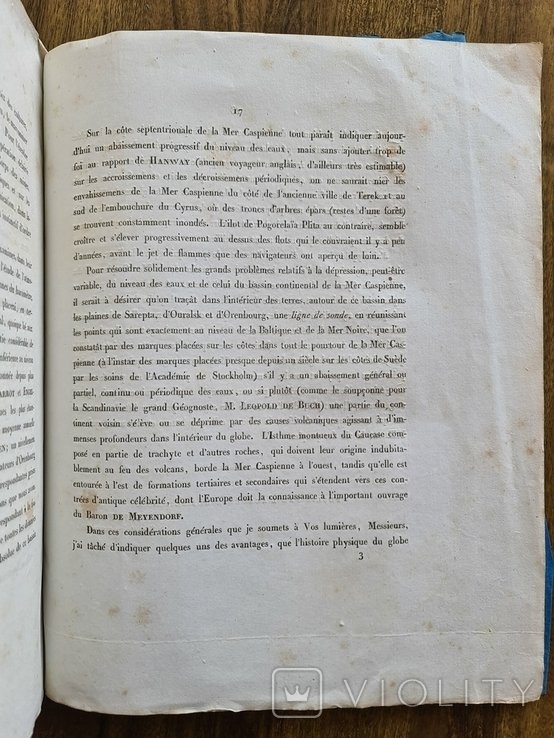 17
Sur la côte septentrionale de la Mer Caspienne tout paraît indiquer aujour-
d'hui un abaissement progressif du niveau des eaux, mais sans ajouter trop de
foi au rapport de HANWAY (ancien voyageur anglais, d'ailleurs très estimable)
sur les accroissemens et les décroissemens périodiques, on ne saurait nier les
envahissemens de la Mer Caspienne du côté de l'ancienne ville de Terek et au
sud de l'embouchure du Cyrus, où des troncs d'arbres épars (restes d'une forêt)
se trouvent constamment inondés. L'ilot de Pogorelaïa Plita au contraire, semble
croître et s'élever progressivement au dessus des flots qui le couvraient il y a peu
d'années, avant le jet de flammes que des navigateurs ont aperçu de loin.
Pour résoudre solidement les grands problèmes relatifs à la dépression, peut-être
variable, du niveau des eaux et de celui du bassin continental de la Mer Caspienne,
il serait à désirer qu'on traçât dans l'intérieur des terres, autour de ce bassin dans
les plaines de Sarepta, d'Ouralsk et d'Orenbourg, une ligne de sonde, en réunissant
les points qui sont exactement au niveau de la Baltique et de la Mer Noire, que l'on
constatât par des marques placées sur les côtes dans tout le pourtour de la Mer Cas-
pienne (à l'instar des marques placées presque depuis un siècle sur les côtes de Suède
par les soins de l'Académie de Stockholm) s'il y a un abaissement général ou
partiel, continu ou périodique des eaux, ou si plutôt (comme le soupçonne pour
la Scandinavie le grand Géognoste, M. LEOPOLD DE BUCH) une partie du con-
tinent voisin s'élève ou se déprime par des causes volcaniques agissant à d'im-
menses profondeurs dans l'intérieur du globe. L'Isthme montueux du Caucase com-
posé en partie de trachyte et d'autres roches, qui doivent leur origine indubita-
blement au feu des volcans, borde la Mer Caspienne à l'ouest, tandis qu'elle est
entourée à l'est de formations tertiaires et secondaires qui s'étendent vers ces con-
trées d'antique célébrité, dont l'Europe doit la connaissance à l'important ouvrage
du Baron DE MEYENDORF.
Dans ces considérations générales que je soumets à Vos lumières, Messieurs,
j'ai tâché d'indiquer quelques uns des avantages, que l'histoire physique du globe
3
VIOLITY